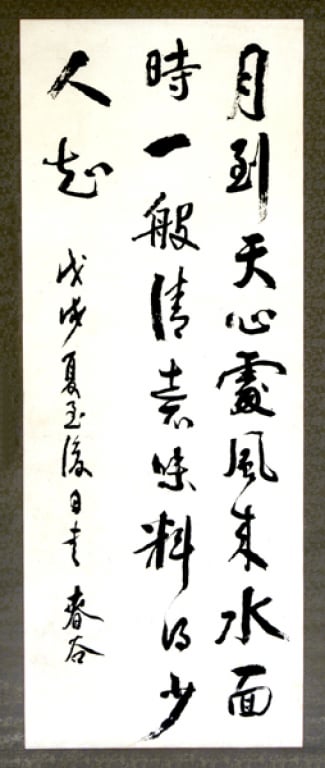 月到天心處風來水面
時一般清意味料得少
人知
戊戌夏至後日 春谷